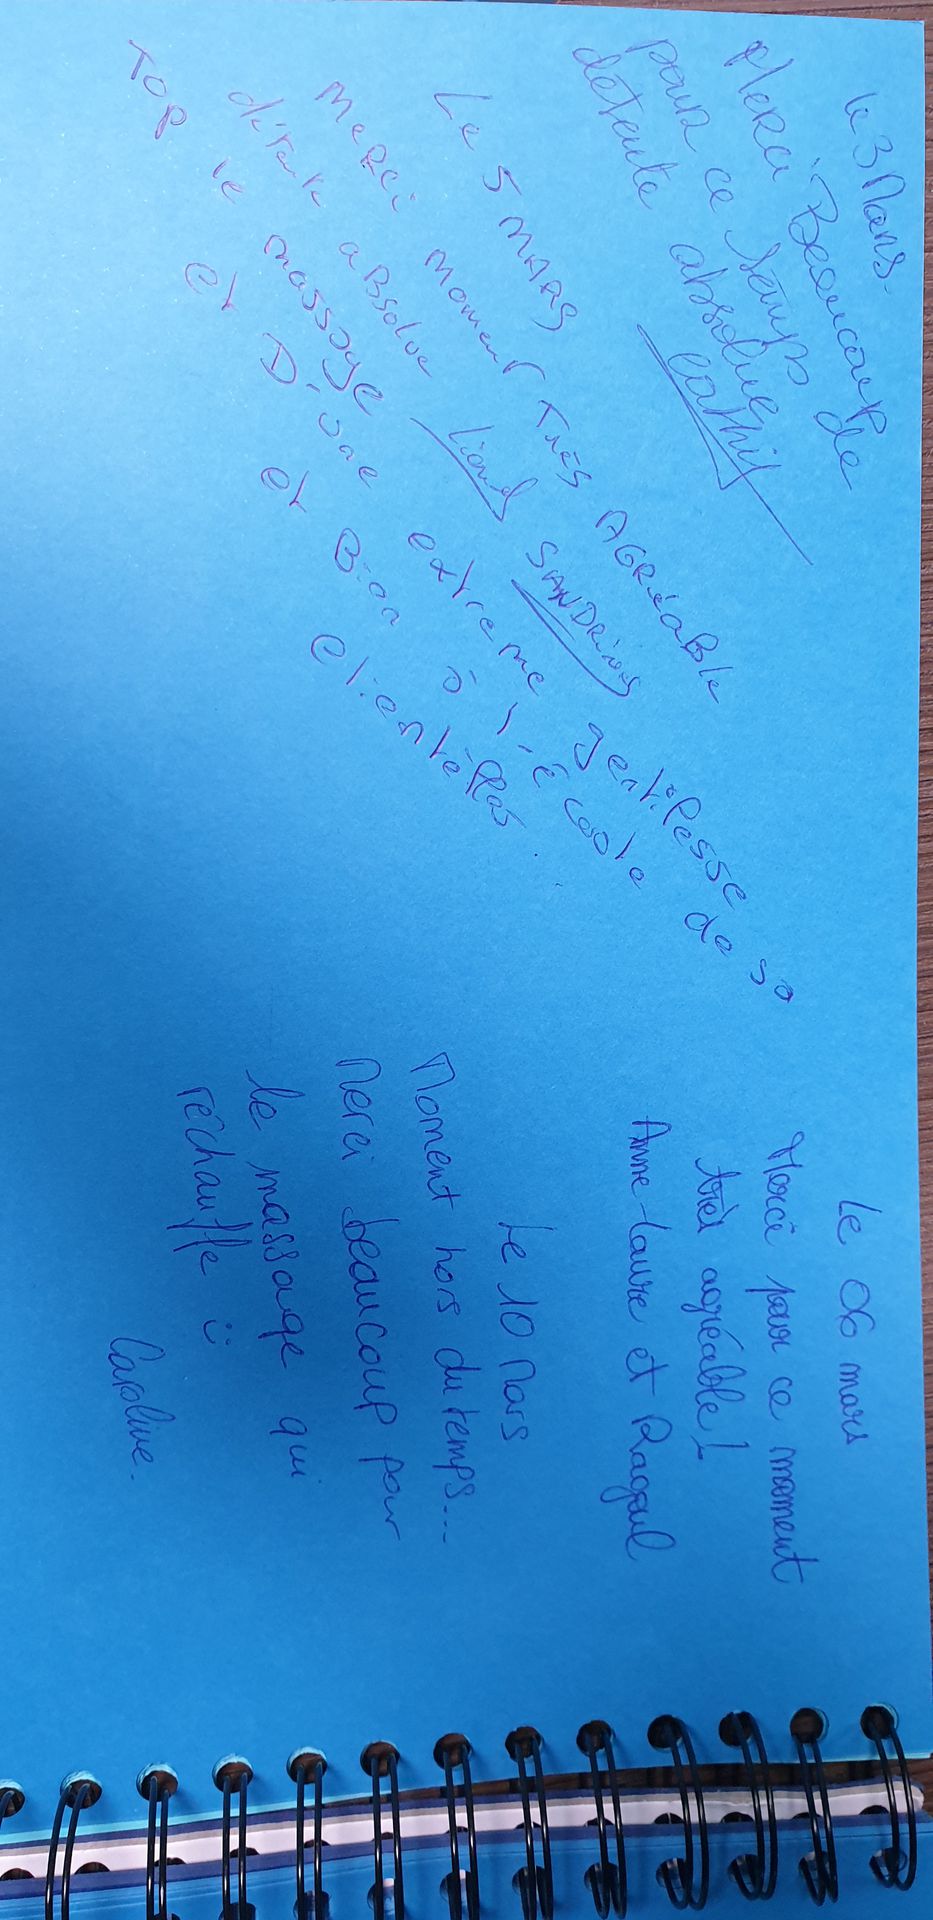 Le 3 Mars.
Merci Beaucoup
pour ce temps de
détente absolue
Le 5 MARS
Merci moment Très AGRéaBle
détente aBsolue Lionel SANDrine
Top le massage extreme gentillesse
et Divine et Bien à l'écoute de sa
clientèlles.
Le 06 mars
Merci pour ce moment
très agréable !
Anne-Laure et
Le 10 Mars
Moment hors du temps...
Merci beaucoup pour
le massage qui
réchauffe ü
Caroline.